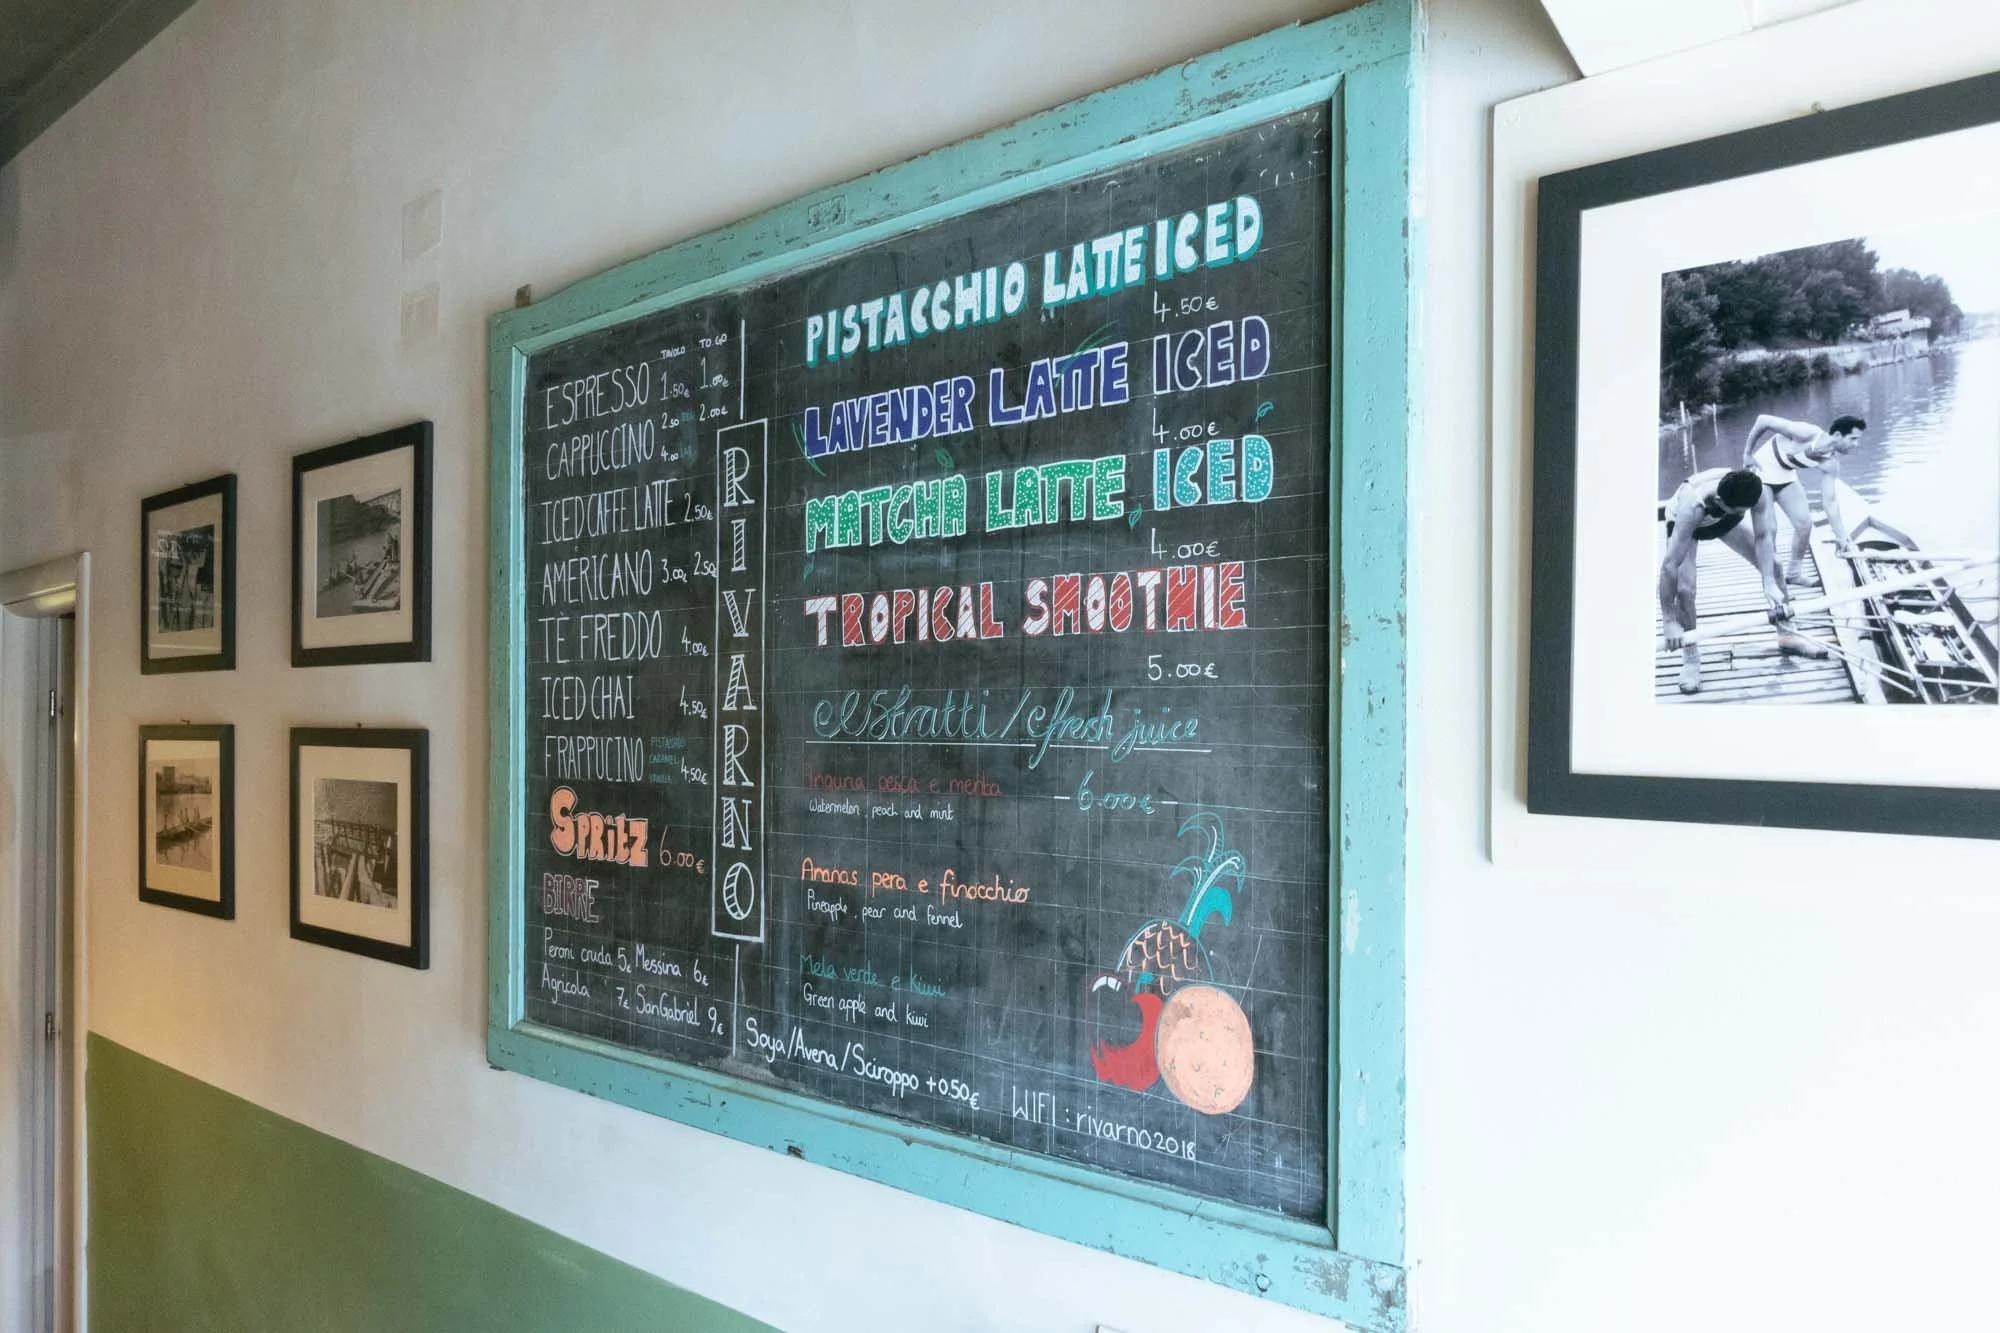 TAVOLO TO GO
ESPRESSO 1.50€ 1.00€
CAPPUCCINO 2.50 2.00€
4.00
ICED CAFFE LATTE 2.50€
AMERICANO 3.00€ 2.50€
TÈ FREDDO 4.00€
ICED CHAI 4.50€
FRAPPUCINO PISTACHIO CARAMEL VANILLA 4,50€
SPRITZ 6.00€
BIRRE
Peroni cruda 5€ Messina 6€
Agricola 7€ SanGabriel 9€
RIVARNO
PISTACCHIO LATTE ICED
4.50€
LAVENDER LATTE ICED
4.00€
MATCHA LATTE ICED
4.00€
TROPICAL SMOOTHIE
5.00€
eSstratti/efresh juice
Anguria pesca e menta -6.00€-
Watermelon, peach and mint
Ananas pera e finocchio
Pineapple, pear and fennel
Mela verde e kiwi
Green apple and kiwi
Soya/Avena/Sciroppo +0.50€
WIFI: rivarno2018